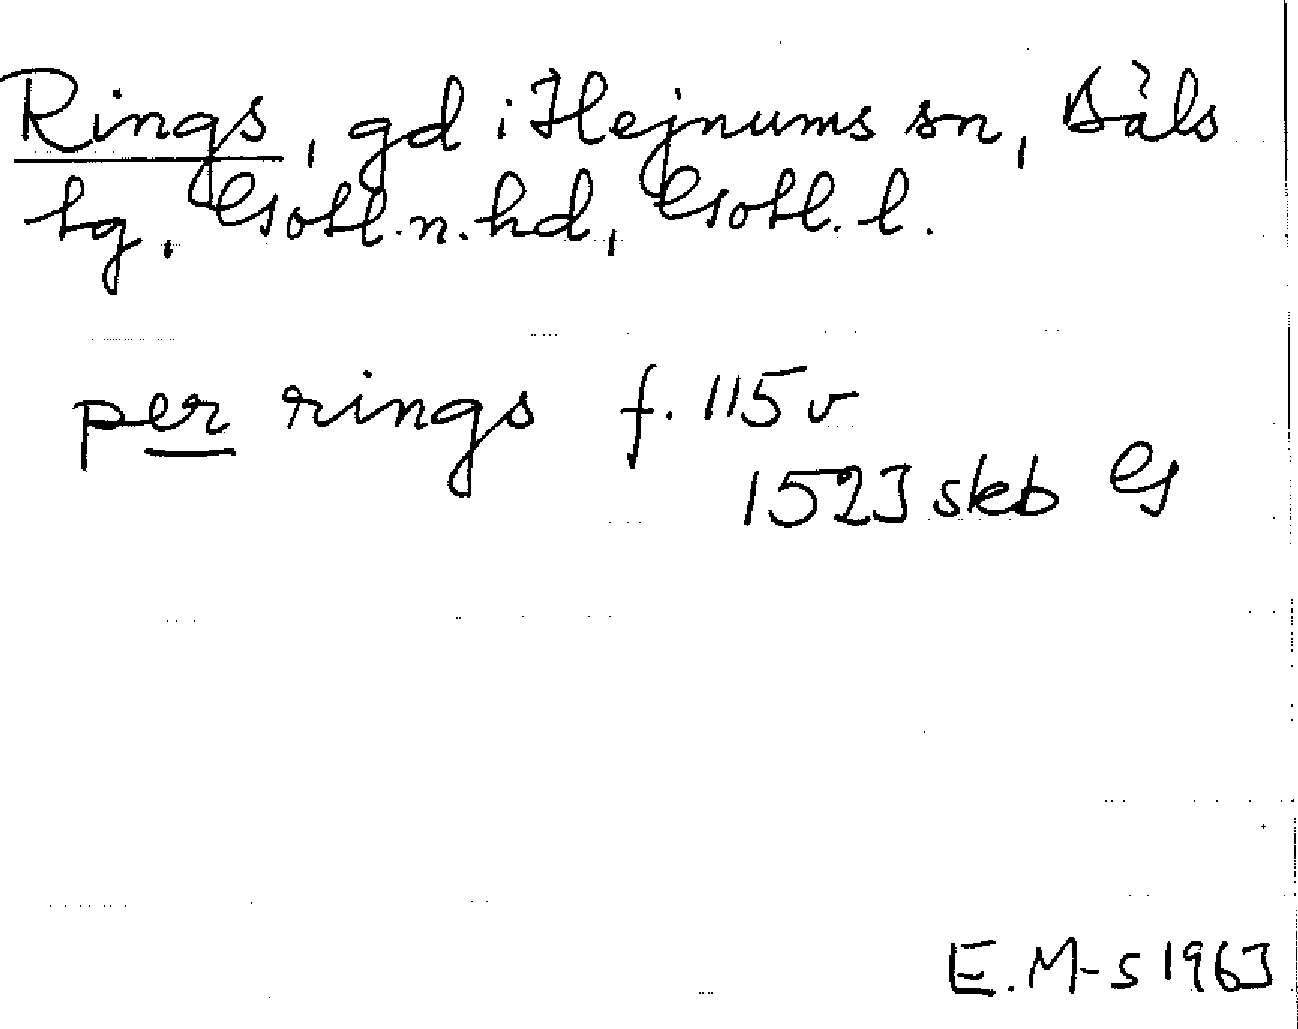 Rings, gd i Hejnums sn, Bäls
tg, Gotl. n. hd, Gotl. l.
per rings f. 115 v
1523 skb G
E. M-s 1963